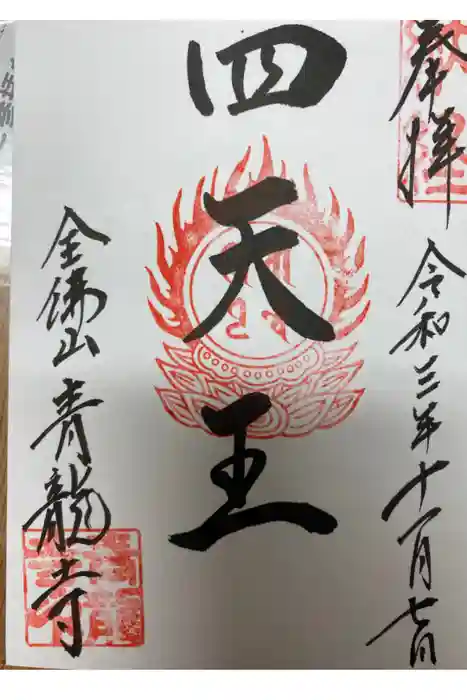 奉拝
令和三年十一月七日
四天王
全佛山青龍寺